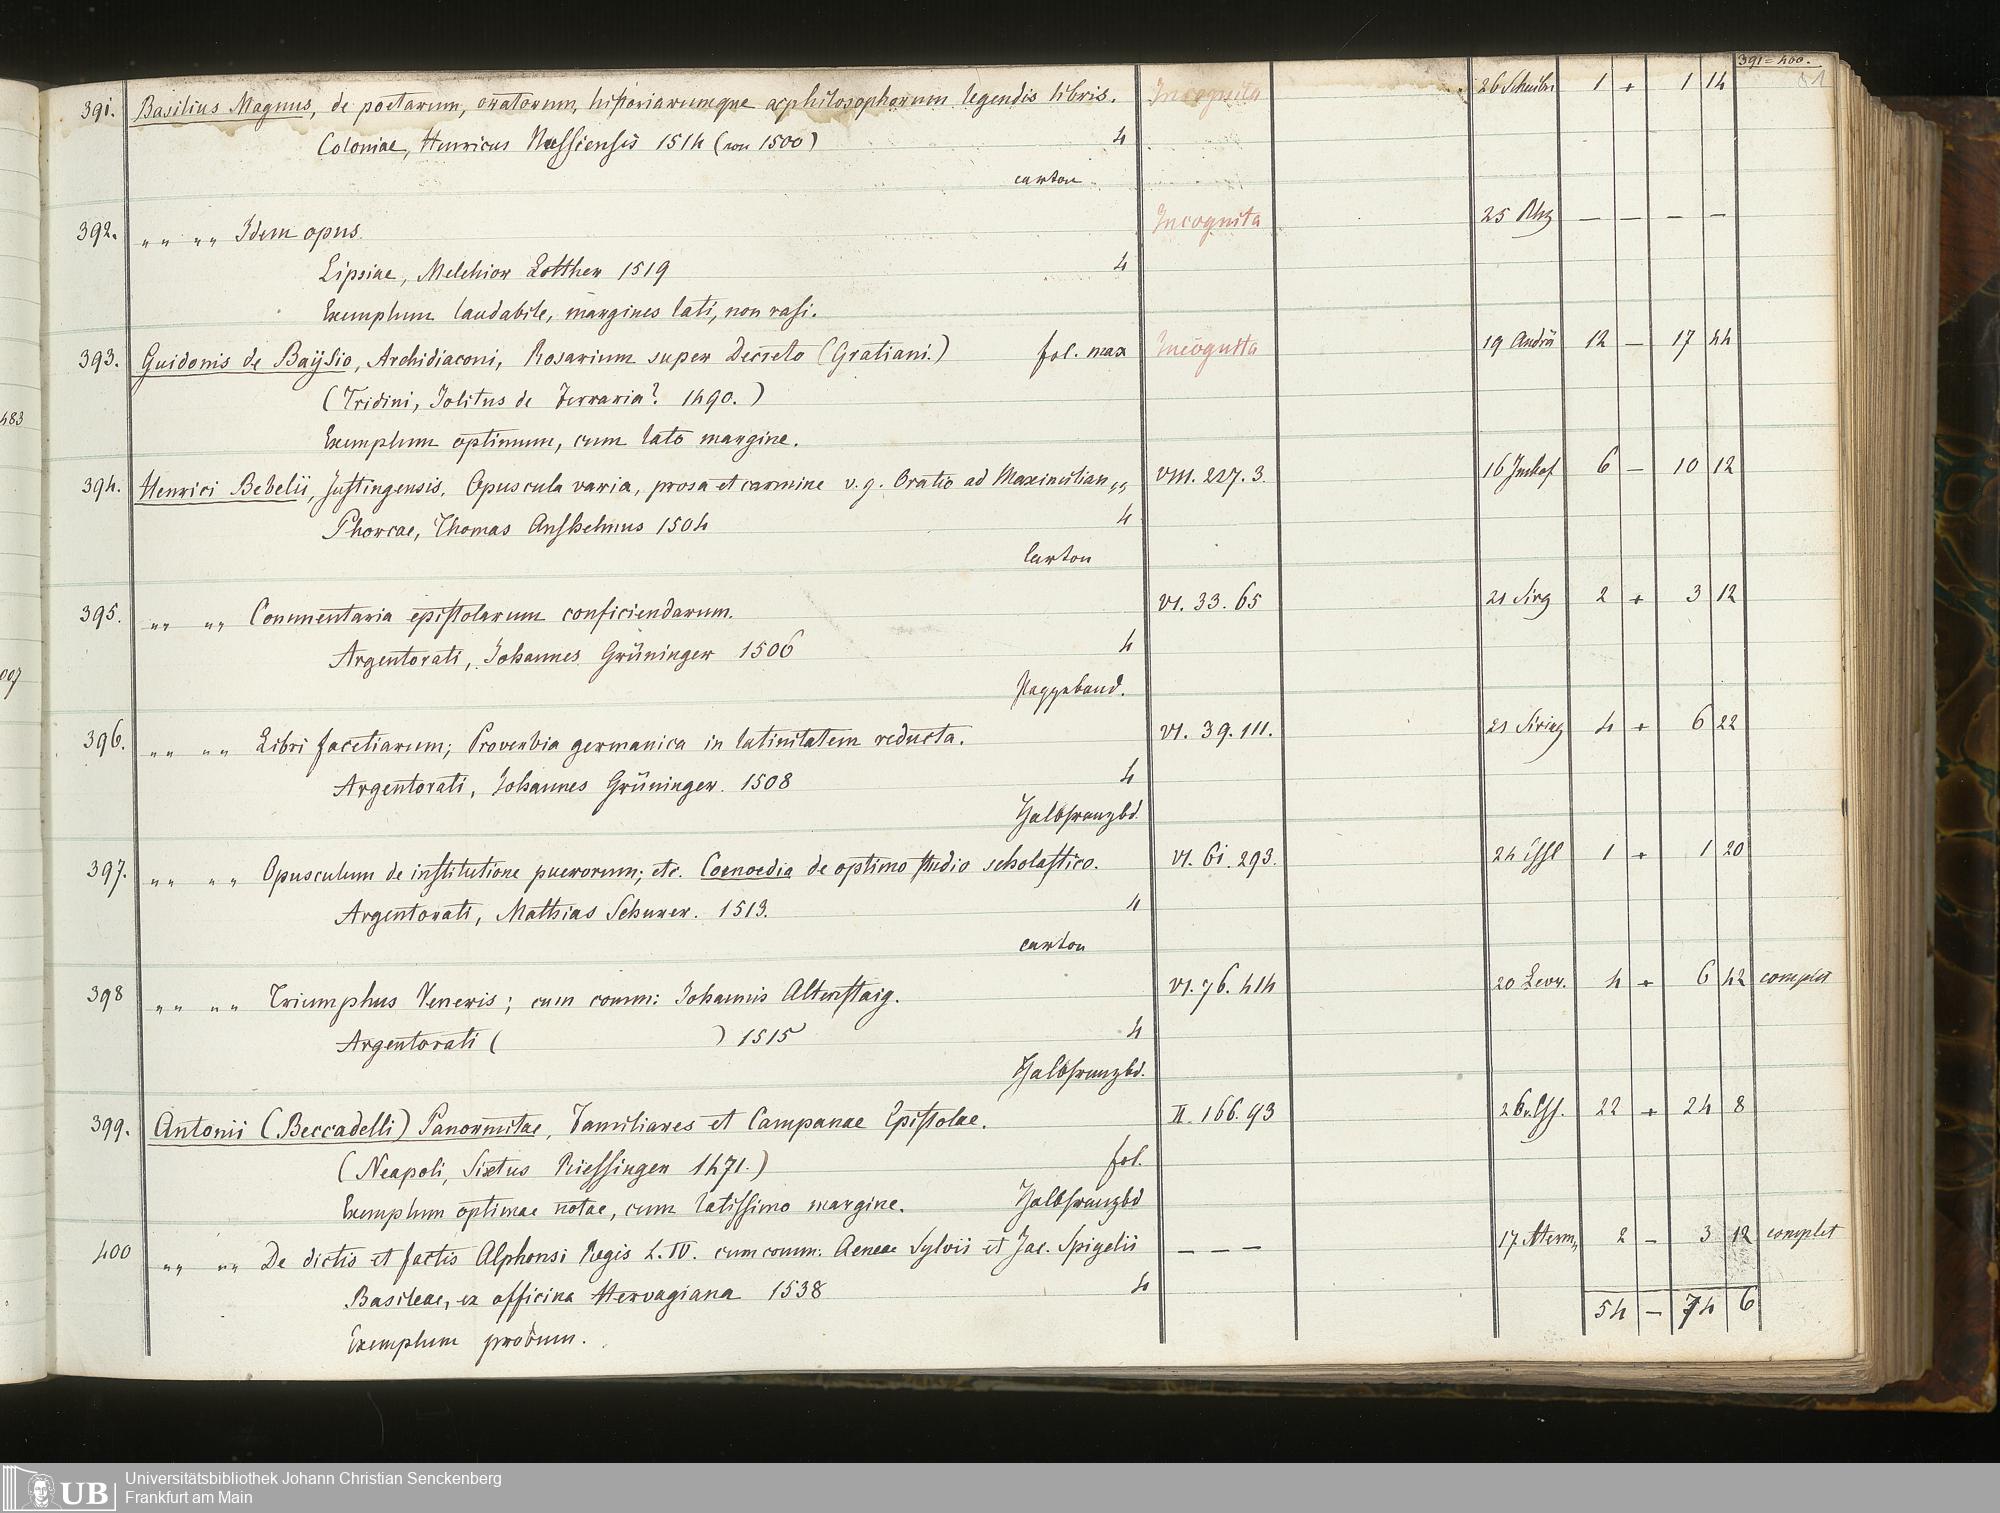 391=400.
81
391. Basilius Magnus, de poetarum, oratorum, historiarumque acphilosophorum legendis libris. Incognita 26 1 + 1 14
Coloniae, Henricus Nussiensis 1514 (non 1500) 4
carton
392. „ „ „ „ Idem opus. Incognita 25 — — — —
Lipsiae, Melchior Lotther 1519 4
Exemplum laudabile, margines lati, non rasi.
393. Guidonis de Baÿsio, Archidiaconi, Rosarium super Decreto (Gratiani.) fol. max Incognita 19 Andrä 12 — 17 44
(Tridini, Jolitus de Ferraria? 1490.)
483
Exemplum optimum, cum lato margine.
394. Henrici Bebelii, Justingensis, Opuscula varia, prosa et carmine v. g. Oratio ad Maximilian „ VIII. 227. 3. 16 Imhof 6 — 10 12
Phorcae, Thomas Anshelmus 1504 4
Carton
395. „ „ „ „ Commentaria epistolarum conficiendarum. VI. 33. 65 21 2 + 3 12
Argentorati, Johannes Grüninger 1506 4
007
Pappband.
396. „ „ „ „ Libri facetiarum; Proverbia germanica in latinitatem reducta. VI. 39. 111. 21 4 + 6 22
Argentorati, Johannes Grüninger. 1508 4
Halbfranzbd.
397. „ „ „ „ Opusculum de institutione puerorum; etc. Comoedia de optimo studio scholastico. VI. 61. 293. 24 1 + 1 20
Argentorati, Mathias Schurer. 1513. 4
carton
398 „ „ „ „ Triumphus Veneris; cum comm: Johannis Altenstaig. VI. 76. 414 20 4 + 6 42 complet
Argentorati ( ) 1515 4
Halbfranzbd.
399. Antonii (Beccadelli) Panormitae, Familiares et Campanae Epistolae. II. 166. 93 26 22 + 24 8
(Neapoli, Sixtus Riessinger 1471.) fol.
Exemplum optimae notae, cum latissimo margine. Halbfranzbd
400 „ „ „ „ De dictis et factis Alphonsi Regis L. IV. cum comm. Aeneae Sylvii et Jac. Spigelii — — — 17 2 — 3 12 complet
Basileae, ex officina Hervagiana 1538 4
54 — 74 6
Exemplum probum.
UB Universitätsbibliothek Johann Christian Senckenberg
Frankfurt am Main